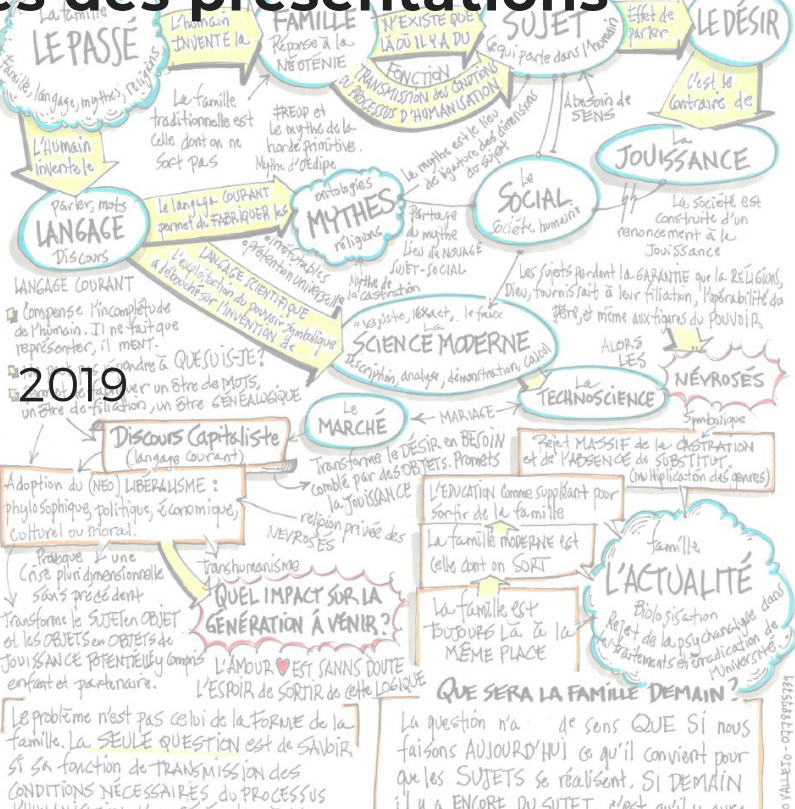 es des présentations
2019
La famille
LE PASSÉ
famille, langage, mythes, religions
L'humain
INVENTE la
FAMILLE
Réponse à la
NÉOTÉNIE
N'EXISTE QUE
LÀ OÙ IL Y A DU
SUJET
qui parle dans l'humain
Effet de
parler
LE DÉSIR
FONCTION
TRANSMISSION des CONDITIONS
DU PROCESSUS D'HUMANISATION
A besoin de
SENS
C'est le
contraire de
La
JOUISSANCE
L'Humain
invente le
La famille
traditionnelle est
celle dont on ne
sort pas
FREUD et
le mythe de la
horde primitive.
Mythe d'Œdipe
Le mythe est le lieu
de ligature des dimensions
du sujet
parler, mots
LANGAGE
Discours
Le langage COURANT
permet de FABRIQUER les
ontologies
MYTHES
religions
irréfutables
prétention universelle
Partage
du mythe
Lieu de NOUAGE
SUJET-SOCIAL
Mythe de
la castration
Le
SOCIAL
Société humaine
La société est
construite d'un
renoncement à la
Jouissance
LANGAGE SCIENTIFIQUE
L'exploitation du pouvoir symbolique
a débouché sur l'INVENTION de
LANGAGE COURANT
Compense l'incomplétude
de l'humain. Il ne fait que
représenter, il MENT.
QUE SUIS-JE?
un être de MOTS,
un être de filiation, un être GÉNÉALOGIQUE
Les sujets perdent la GARANTIE que la RELIGION,
Dieu, fournissait à leur filiation, l'opérabilité du
père, et même aux figures du POUVOIR
le juste, l'exact, le faux
La
SCIENCE MODERNE
description, analyse, démonstration, calcul
ALORS
LES
NÉVROSÉS
La
TECHNOSCIENCE
MARIAGE
Le
MARCHÉ
Symbolique
Discours Capitaliste
(langage courant)
Transforme le DÉSIR en BESOIN
comblé par des OBJETS. Promets
la JOUISSANCE
Rejet MASSIF de la CASTRATION
et de l'ABSENCE de SUBSTITUT
(multiplication des genres)
Adoption du (NEO) LIBERALISME :
phylosophique, politique, économique,
culturel ou moral.
religion privée des
NEVROSÉS
L'EDUCATION comme suppléant pour
sortir de la famille
La famille MODERNE est
celle dont on SORT
La famille est
TOUJOURS LÀ à la
MÊME PLACE
famille
L'ACTUALITÉ
Biologisation
Rejet de la psychanalyse dans
les traitements et éradication de
l'Université
Crise pluridimensionnelle
sans précédent
Transforme le SUJET en OBJET
et les OBJETS en OBJETS de
JOUISSANCE POTENTIELLE y compris
enfant et partenaire.
transhumanisme
QUEL IMPACT SUR LA
GÉNÉRATION À VENIR?
L'AMOUR EST SANNS DOUTE
L'ESPOIR de SORTIR de cette LOGIQUE
Le problème n'est pas celui de la FORME de la
famille. La SEULE QUESTION est de SAVOIR,
si sa fonction de TRANSMISSION des
CONDITIONS NÉCESSAIRES du PROCESSUS
QUE SERA LA FAMILLE DEMAIN?
La question n'a de sens QUE SI nous
faisons AUJOURD'HUI ce qu'il convient pour
que les SUJETS se réalisent, SI DEMAIN
il y a ENCORE DU SUJET
VALLEJO - 0778875739